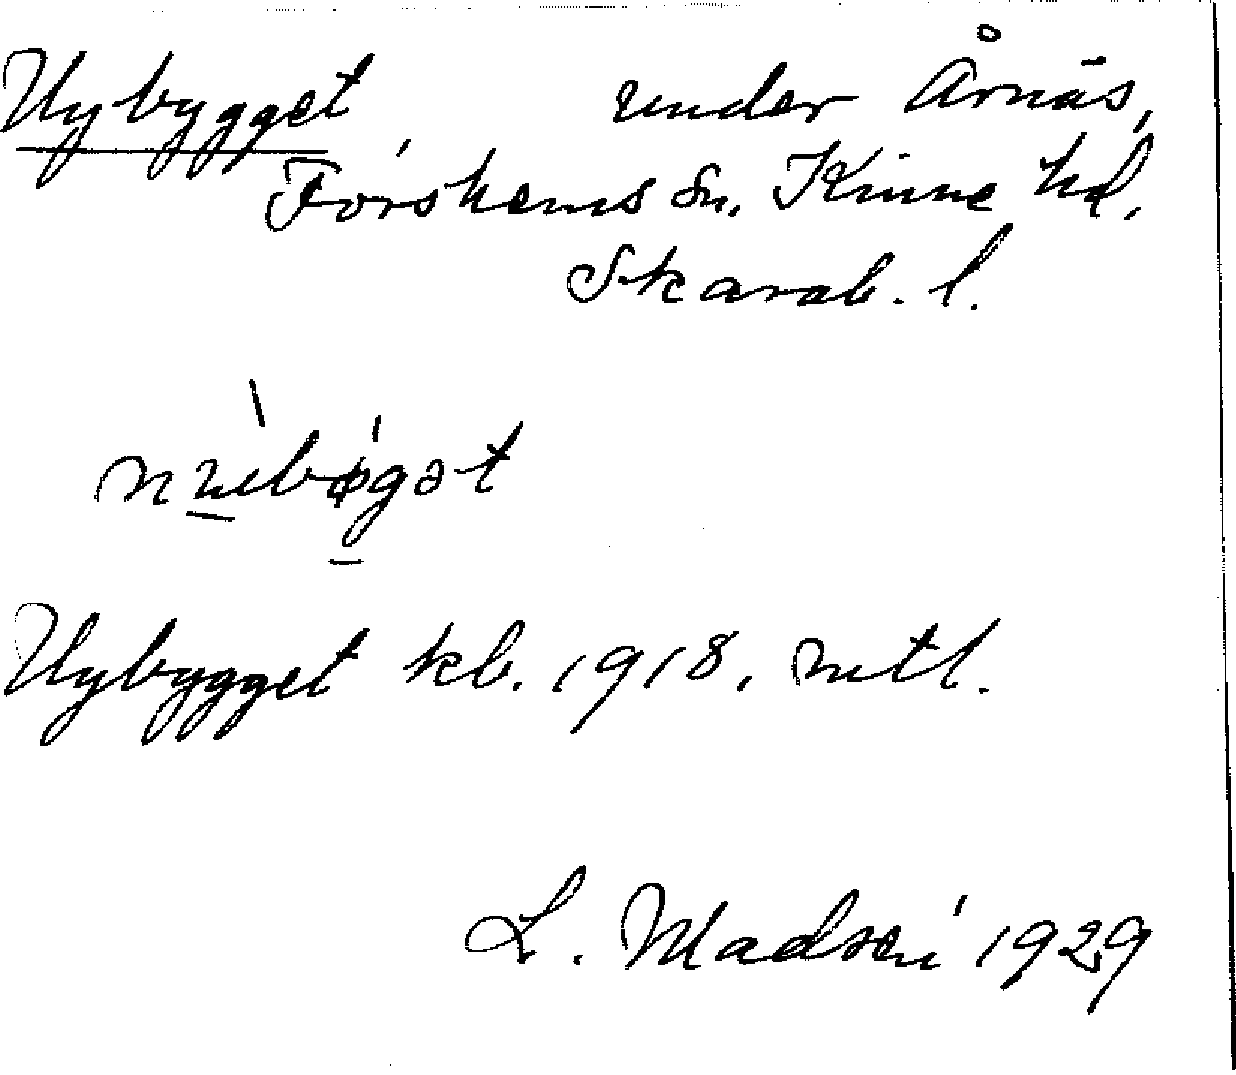 Nybygget under Årnäs,
Forshems sn, Kinne hd,
Skarab. l.
Nybygget kb. 1918, mtl.
L. Madsén 1929